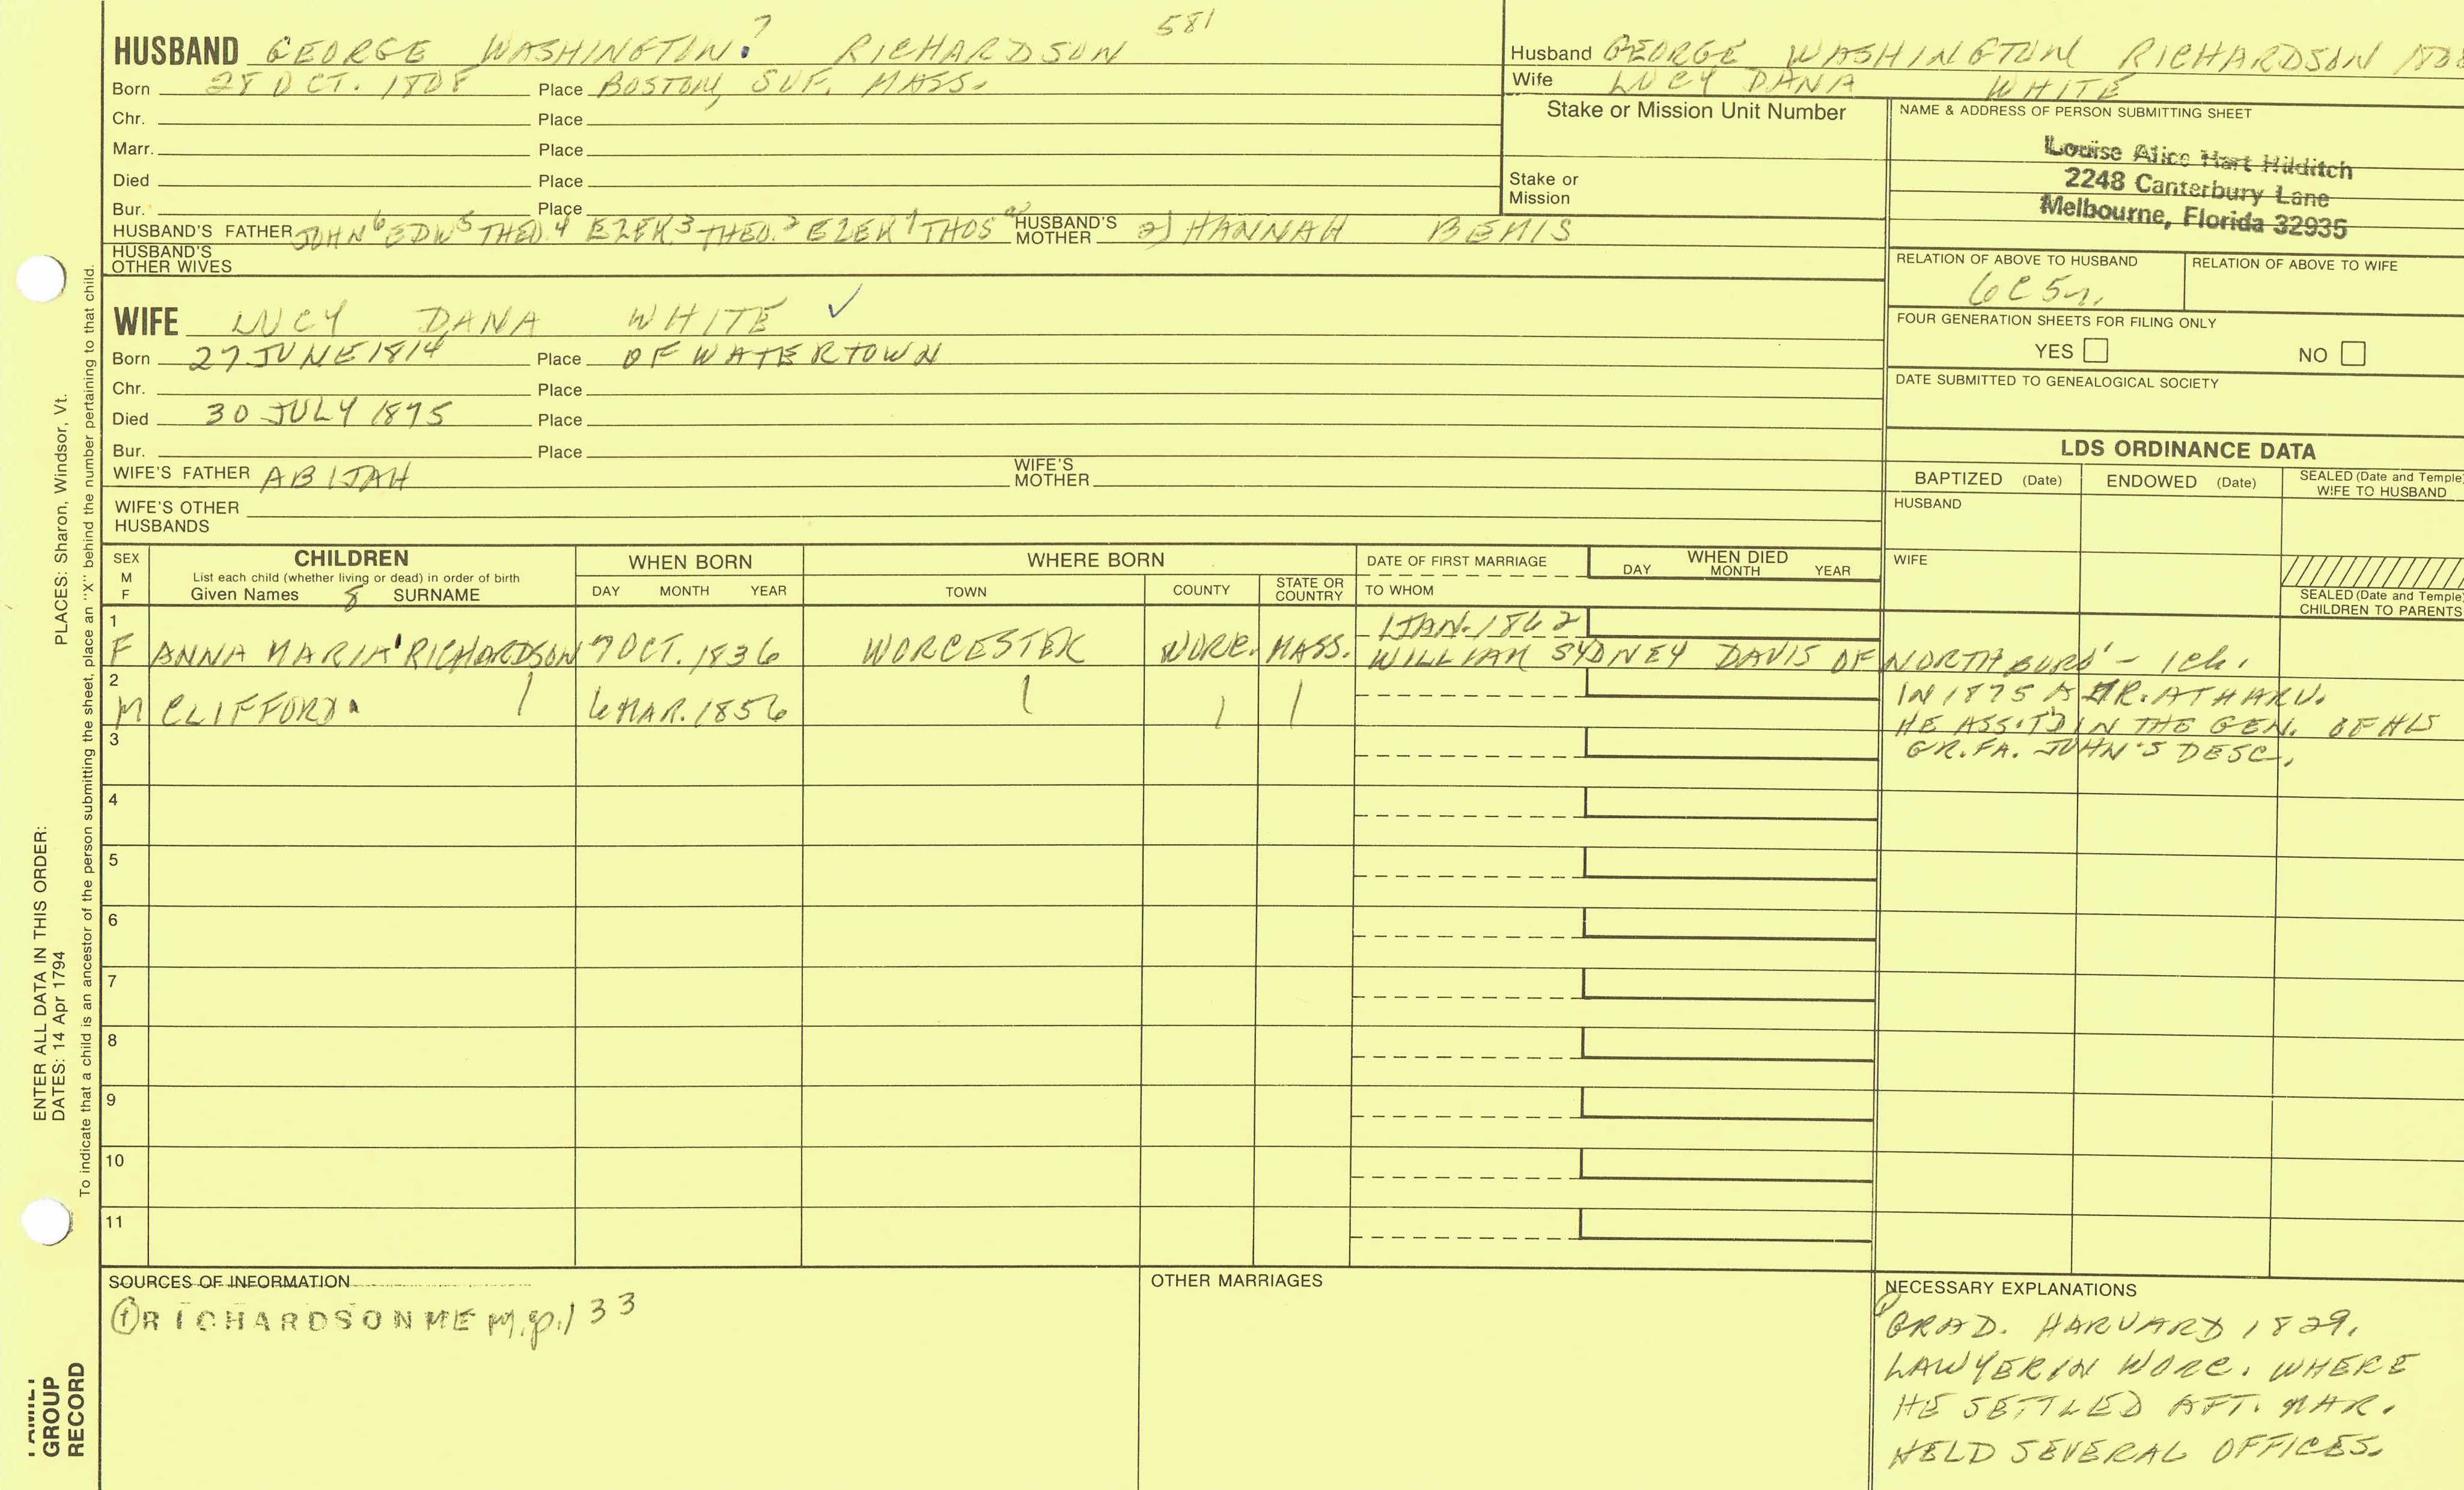 7 581
HUSBAND GEORGE WASHINGTON. RICHARDSON
Born 28 OCT. 1808 Place BOSTON, SUF. MASS.
Chr. Place
Marr. Place
Died Place
Bur. Place
HUSBAND'S FATHER JOHN 6 EDW 5 THEO. 4 EZEK. 3 THEO. 2 EZEK 1 THOS a) HUSBAND'S MOTHER 2) HANNAH BEMIS
HUSBAND'S OTHER WIVES
WIFE LUCY DANA WHITE ✓
Born 27 JUNE 1814 Place OF WATERTOWN
Chr. Place
Died 30 JULY 1895 Place
Bur. Place
WIFE'S FATHER ABIJAH WIFE'S MOTHER
WIFE'S OTHER HUSBANDS
Husband GEORGE WASHINGTON RICHARDSON 1808
Wife LUCY DANA WHITE
Stake or Mission Unit Number
Stake or Mission
NAME & ADDRESS OF PERSON SUBMITTING SHEET
Louise Alice Hart Hilditch
2248 Canterbury Lane
Melbourne, Florida 32935
RELATION OF ABOVE TO HUSBAND RELATION OF ABOVE TO WIFE
6C5r.
FOUR GENERATION SHEETS FOR FILING ONLY
YES NO
DATE SUBMITTED TO GENEALOGICAL SOCIETY
LDS ORDINANCE DATA
BAPTIZED (Date) ENDOWED (Date) SEALED (Date and Temple) WIFE TO HUSBAND
HUSBAND
WIFE
SEALED (Date and Temple)
CHILDREN TO PARENTS
SEX M F CHILDREN WHEN BORN WHERE BORN DATE OF FIRST MARRIAGE WHEN DIED
List each child (whether living or dead) in order of birth
Given Names 8 SURNAME DAY MONTH YEAR TOWN COUNTY STATE OR COUNTRY TO WHOM DAY MONTH YEAR
1 1 JAN. 1862
F ANNA MARIA RICHARDSON 7 OCT. 1836 WORCESTER WORC. MASS. WILLIAM SYDNEY DAVIS OF NORTHBORO' - 1 ch.
2 IN 1875 A JR. AT HARV.
M CLIFFORD. 6 MAR. 1856
HE ASSIT'D IN THE GEN. OF HIS
3 GR. FA. JOHN'S DESC.
4
5
6
7
8
9
10
11
SOURCES OF INFORMATION
RICHARDSON MEM. p. 133
OTHER MARRIAGES
NECESSARY EXPLANATIONS
GRAD. HARVARD 1829.
LAWYER IN WORC. WHERE
HE SETTLED AFT. MAR.
HELD SEVERAL OFFICES.
ENTER ALL DATA IN THIS ORDER:
DATES: 14 Apr 1794 PLACES: Sharon, Windsor, Vt.
To indicate that a child is an ancestor of the person submitting the sheet, place an "X" behind the number pertaining to that child.
FAMILY
GROUP
RECORD